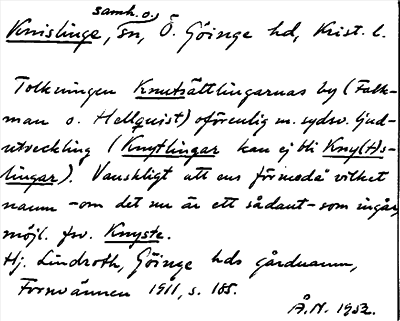 samh. o.
Knislinge, sn, Ö. Göinge hd, Krist. l.
Tolkningen Knutsättlingarnas by (Falk-
man o. Hellquist) oförenlig m. sydsv. ljud-
utveckling (Knytlingar kan ej bli Kny(t)s-
lingar). Vanskligt att ens förmoda vilket
namn - om det nu är ett sådant - som ingår,
möjl. fv. Knyste.
Hj. Lindroth, Göinge hds gårdnamn,
Fornvännen 1911, s. 168.
Å.N. 1952.